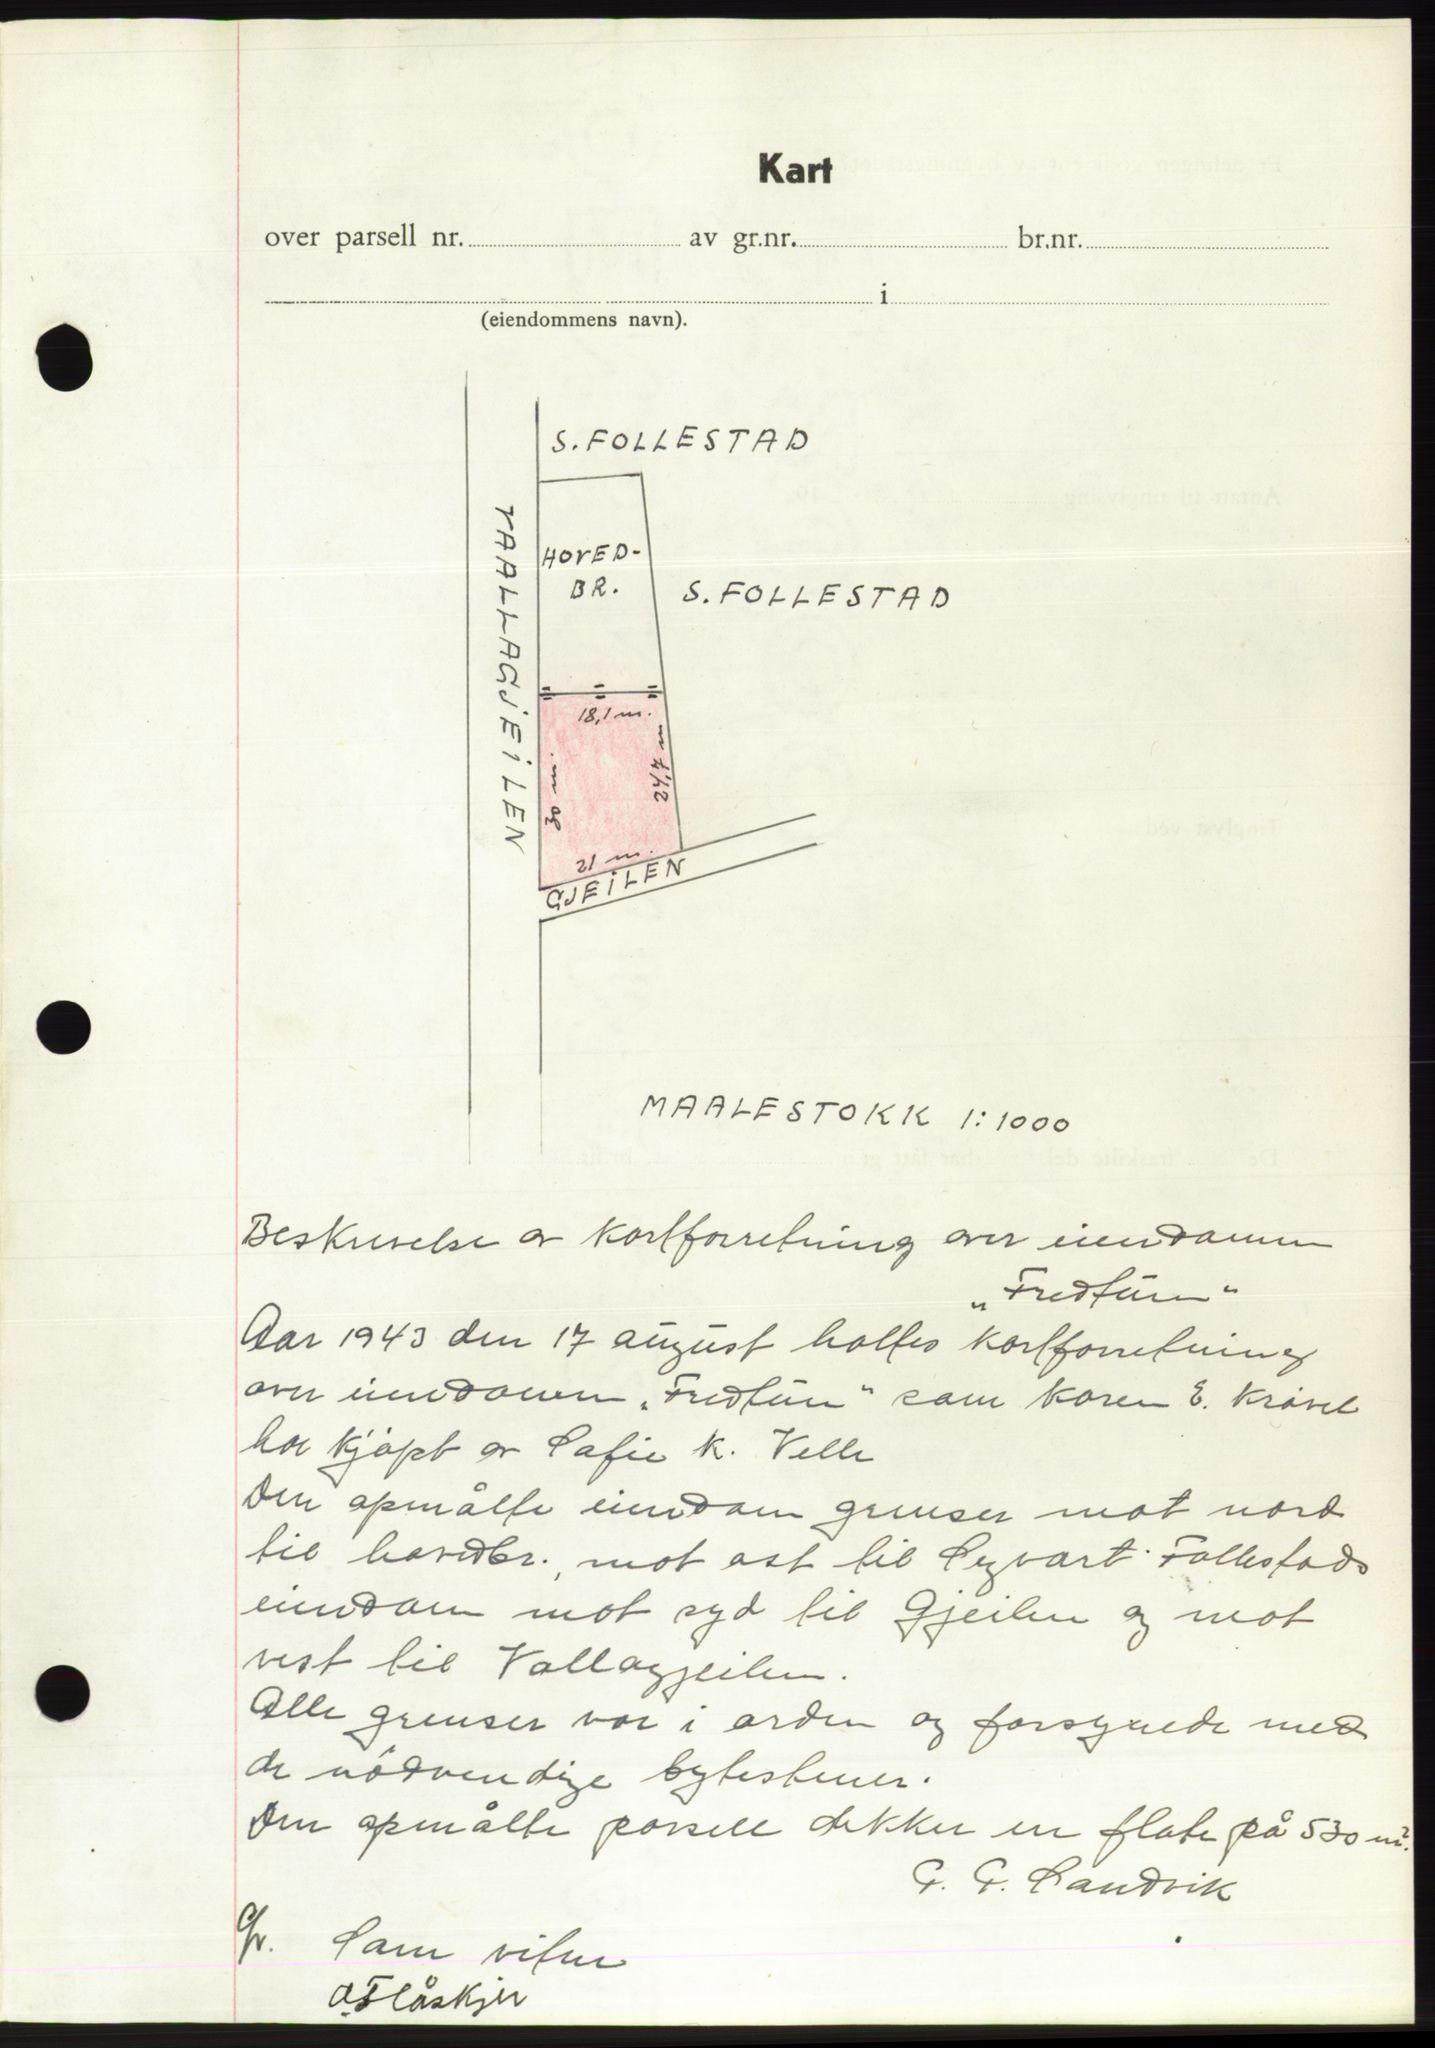 Kart
over parsell nr. av gr.nr. br.nr.
i
(eiendommens navn).
S. FOLLESTAD
HOVED-
BR.
S. FOLLESTAD
VAALLAGJEILEN
18,1 m.
30 m.
24,7 m
21 m.
GJEILEN
MAALESTOKK 1:1000
Beskrivelse av kartforretning over eiendommen
„Fredtun"
Aar 1943 den 17 august holtes kartforretning
over eiendomen „Fredtun" som Karen E. Krøvel
har kjøpt av Safie K. Velle
Den opmålte eiendom grenser mot nord
til hovedbr., mot ost til Syvart Follestads
eiendom mot syd til Gjeilen og mot
vest til Vallagjeilen.
Alle grenser var i orden og forsynede med
de nödvendige bytestener.
Den opmålte parsell dekker en flate på 530 m².
G. G. Sandvik
Som vitne
Flåskjer